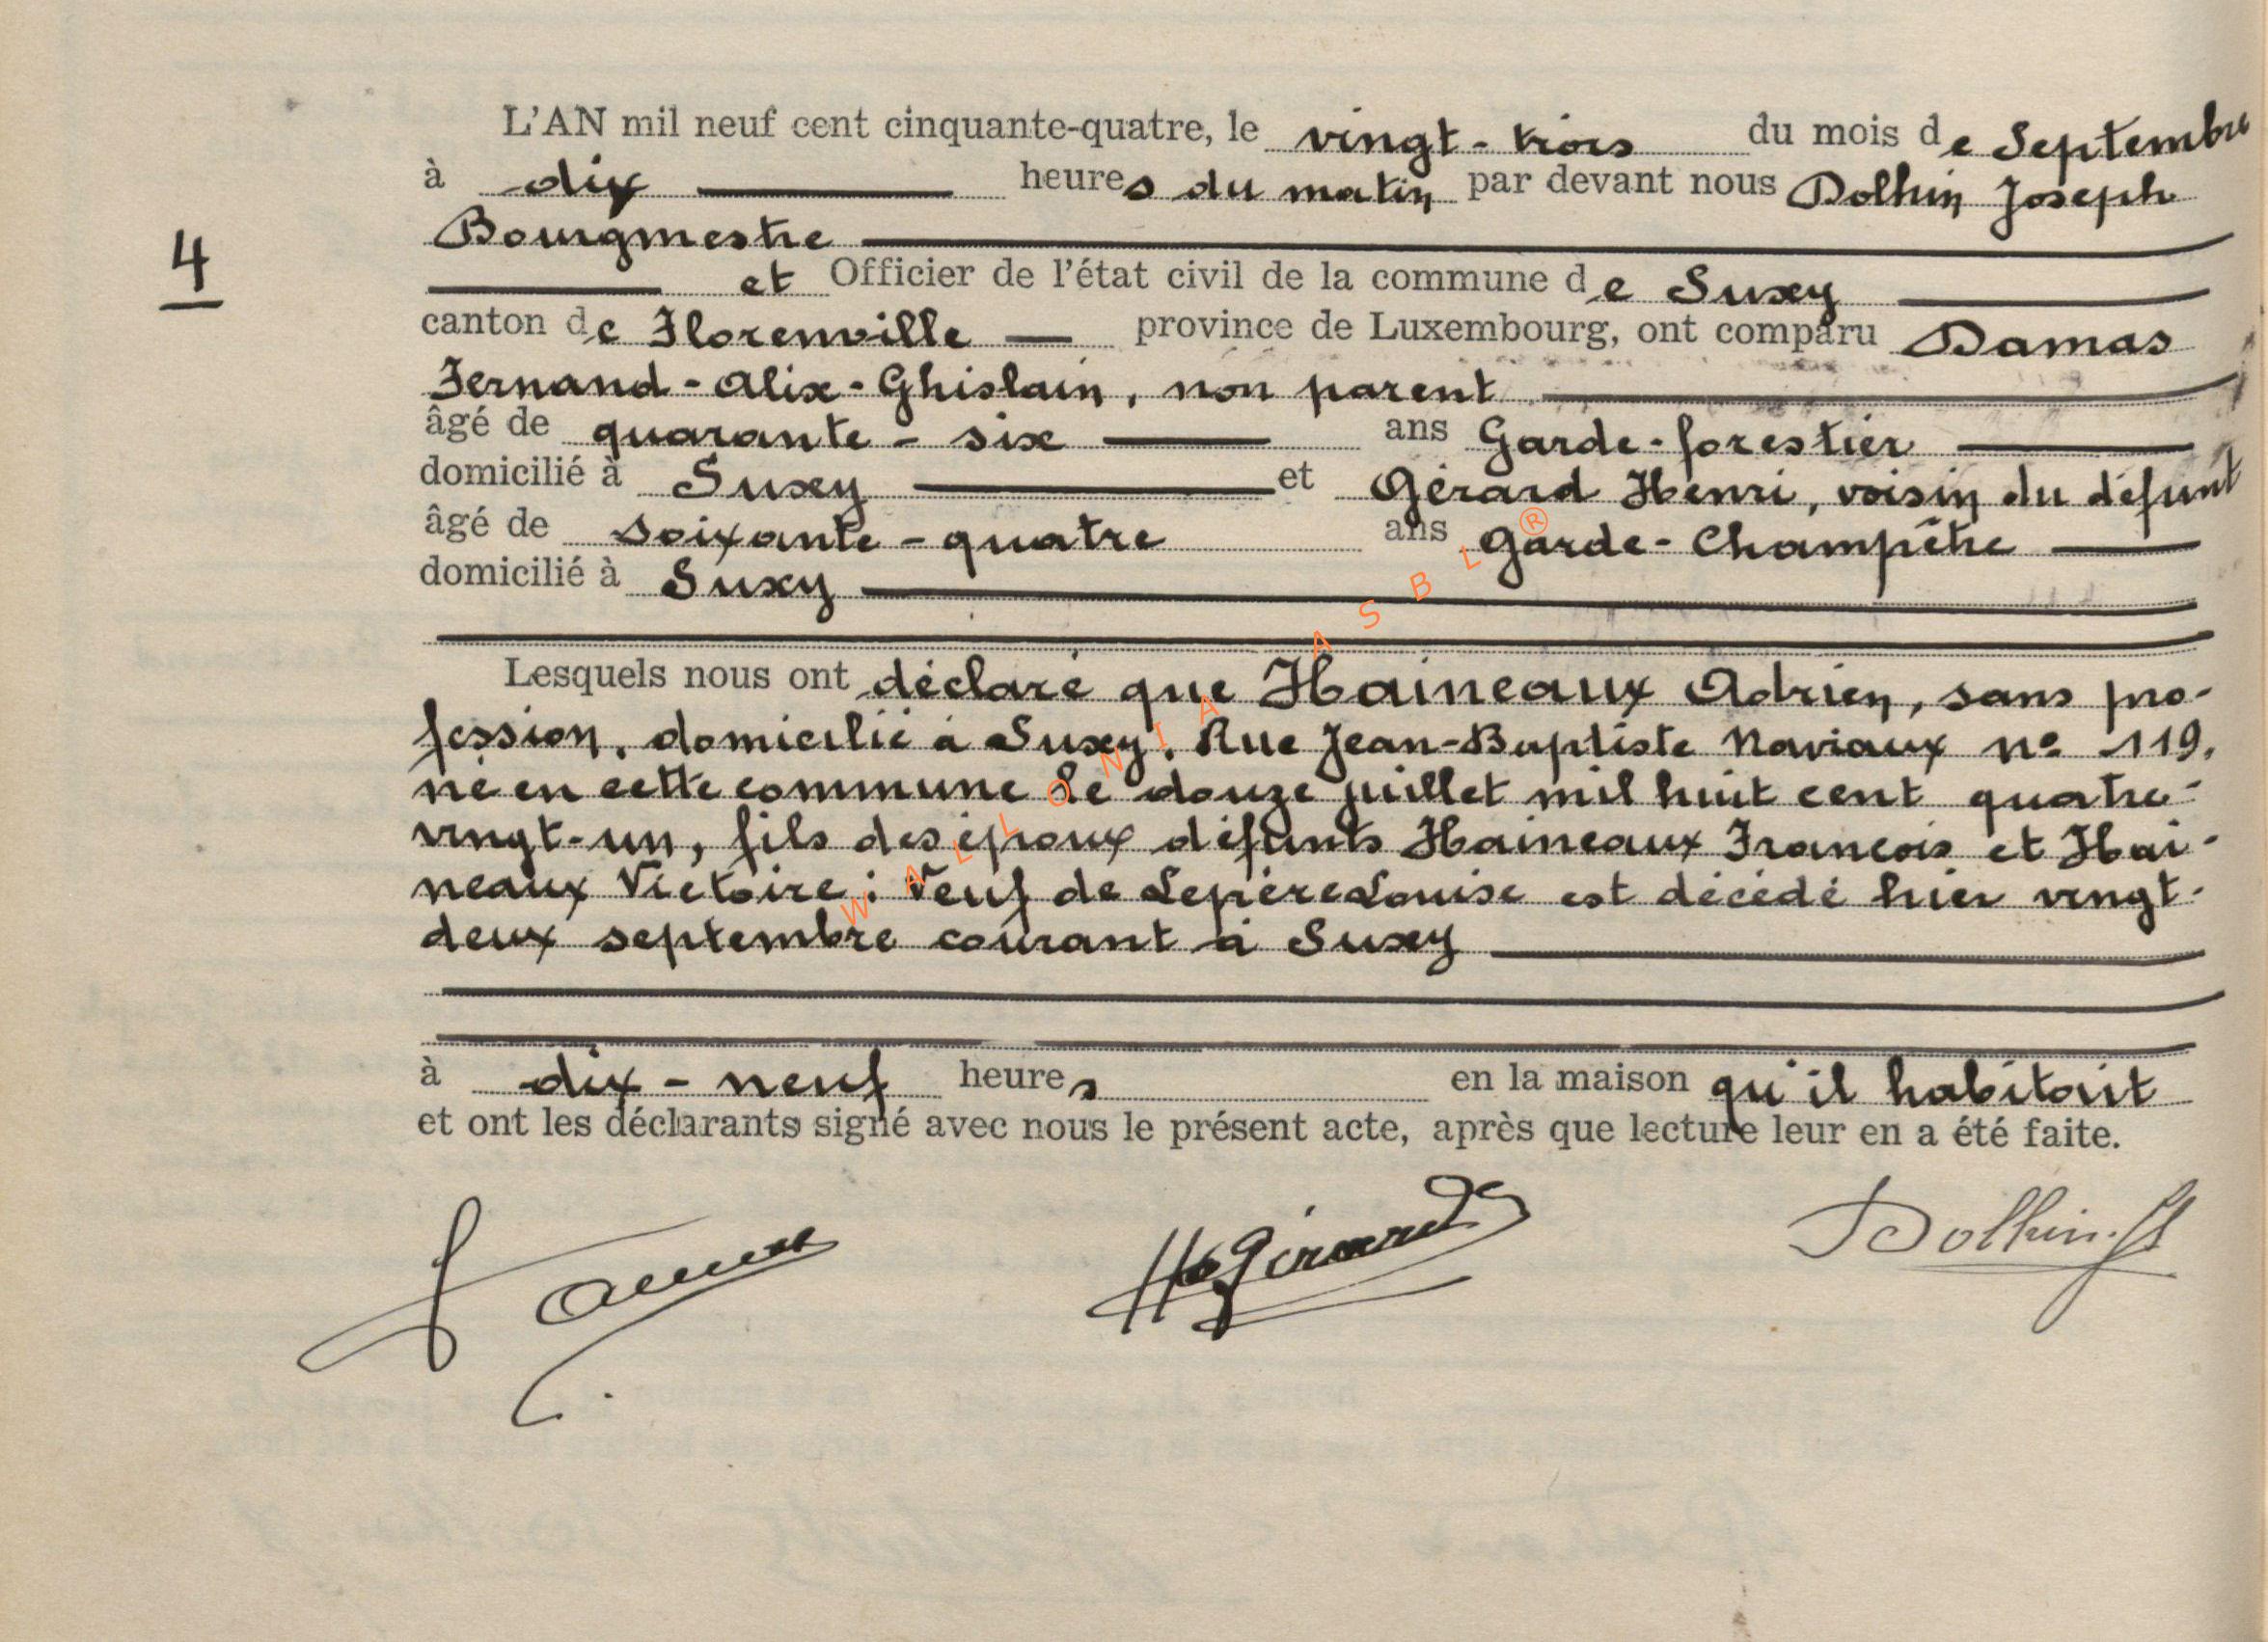 L'AN mil neuf cent cinquante-quatre, le vingt-trois du mois de Septembre
à dix heures du matin par devant nous Dolhin Joseph
Bourgmestre
4
et Officier de l'état civil de la commune de Suxy
canton de Florenville province de Luxembourg, ont comparu Damas
Fernand-Alix-Ghislain, non parent
âgé de quarante-six ans Garde-forestier
domicilié à Suxy et Gérard Henri, voisin du défunt
âgé de soixante-quatre ans Garde-Champêtre
domicilié à Suxy
Lesquels nous ont déclaré que Haineaux Adrien, sans pro-
fession, domicilié à Suxy, Rue Jean-Baptiste Naviaux n° 119,
né en cette commune le douze juillet mil huit cent quatre-
vingt-un, fils des époux défunts Haineaux François et Hai-
neaux Victoire; Veuf de Lepère Louise est décédé hier vingt-
deux septembre courant à Suxy
à dix-neuf heures en la maison qu'il habitait
et ont les déclarants signé avec nous le présent acte, après que lecture leur en a été faite.
Damas H Gérard Dolhin J
WALLONIA ASBL ®